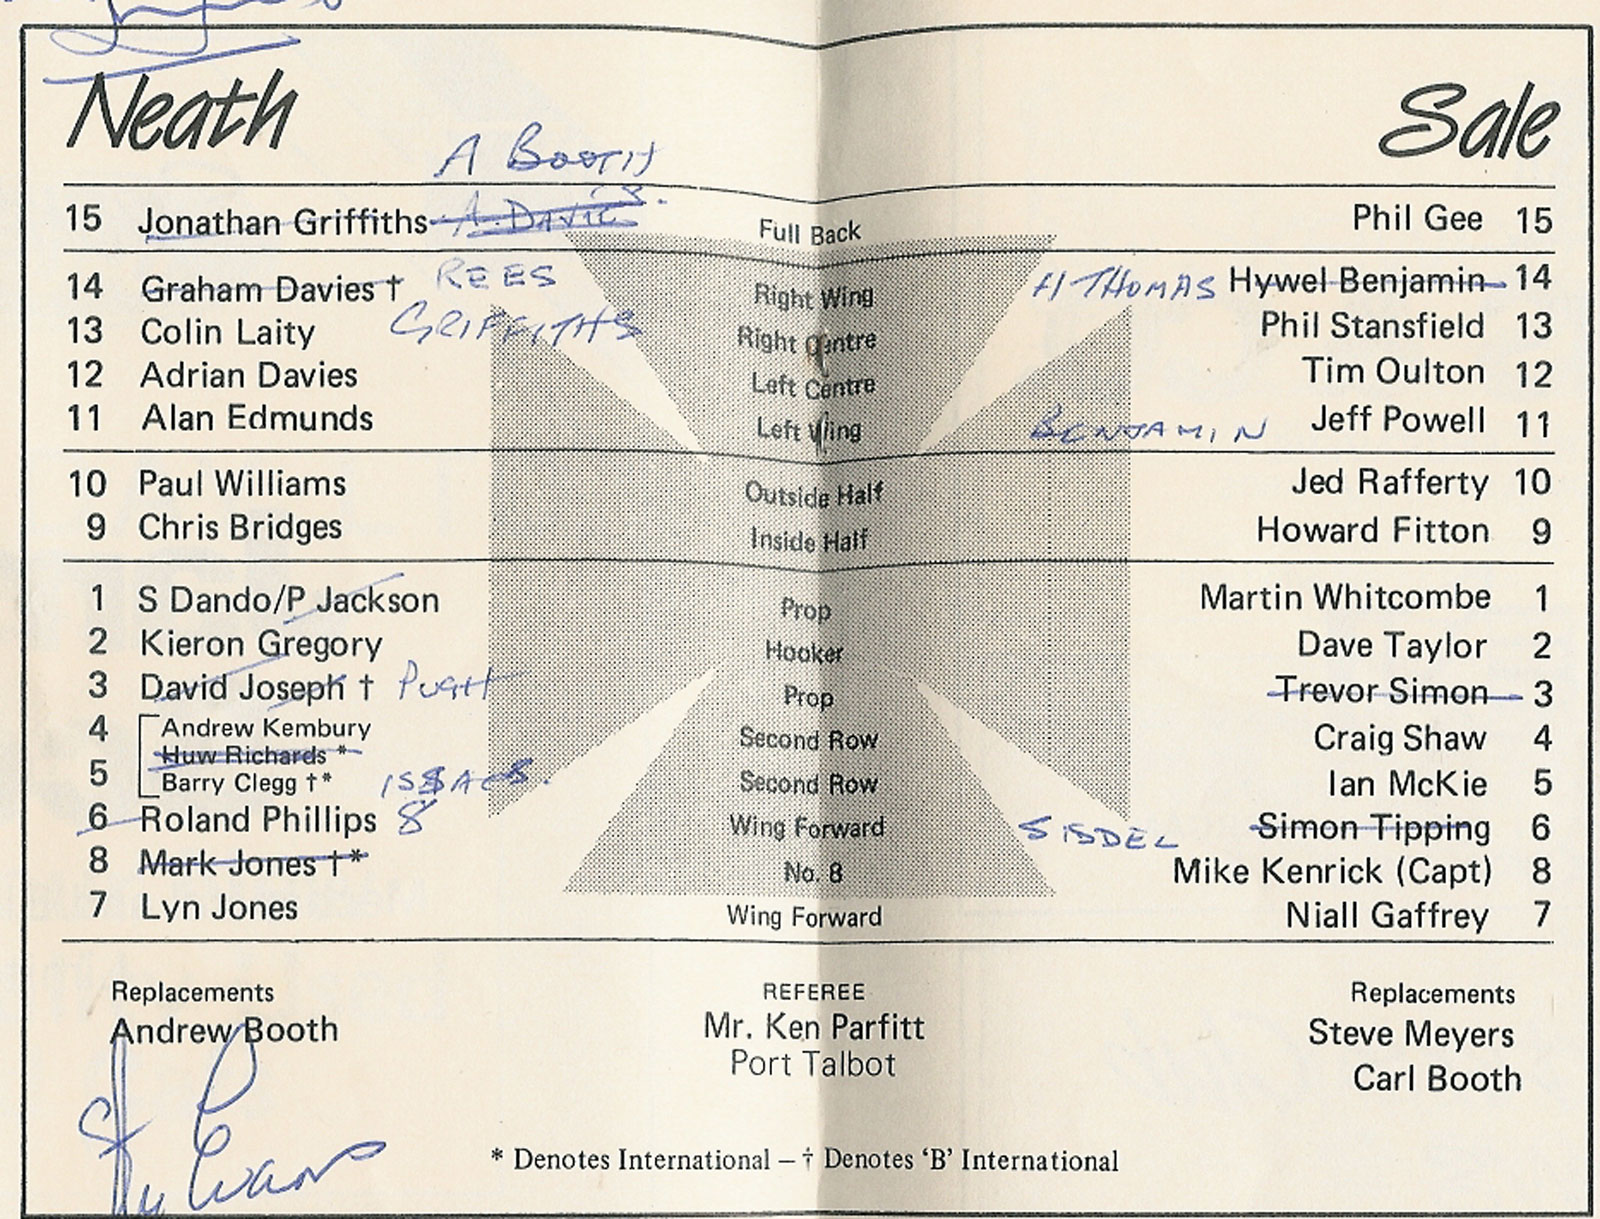 Neath Sale
A BOOTH
15 Jonathan Griffiths A. DAVIES. Full Back Phil Gee 15
14 Graham Davies † REES Right Wing H THOMAS Hywel Benjamin 14
13 Colin Laity GRIFFITHS Right Centre Phil Stansfield 13
12 Adrian Davies Left Centre Tim Oulton 12
11 Alan Edmunds Left Wing BENJAMIN Jeff Powell 11
10 Paul Williams Outside Half Jed Rafferty 10
9 Chris Bridges Inside Half Howard Fitton 9
1 S Dando/P Jackson Prop Martin Whitcombe 1
2 Kieron Gregory Hooker Dave Taylor 2
3 David Joseph † PUGH Prop Trevor Simon 3
4 Andrew Kembury Second Row Craig Shaw 4
Huw Richards *
5 Barry Clegg †* ISSACS. Second Row Ian McKie 5
6 Roland Phillips 8 Wing Forward SISDEL Simon Tipping 6
8 Mark Jones †* No. 8 Mike Kenrick (Capt) 8
7 Lyn Jones Wing Forward Niall Gaffrey 7
Replacements REFEREE Replacements
Andrew Booth Mr. Ken Parfitt Steve Meyers
Port Talbot Carl Booth
Evans
* Denotes International – † Denotes ‘B’ International